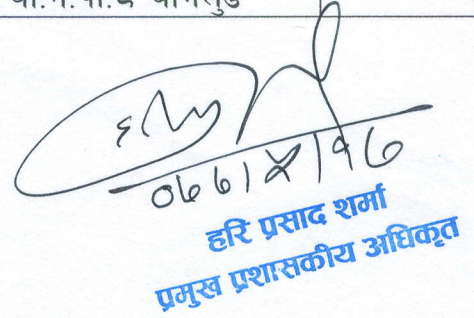 ०७७|५|१७
हरि प्रसाद शर्मा
प्रमुख प्रशासकीय अधिकृत